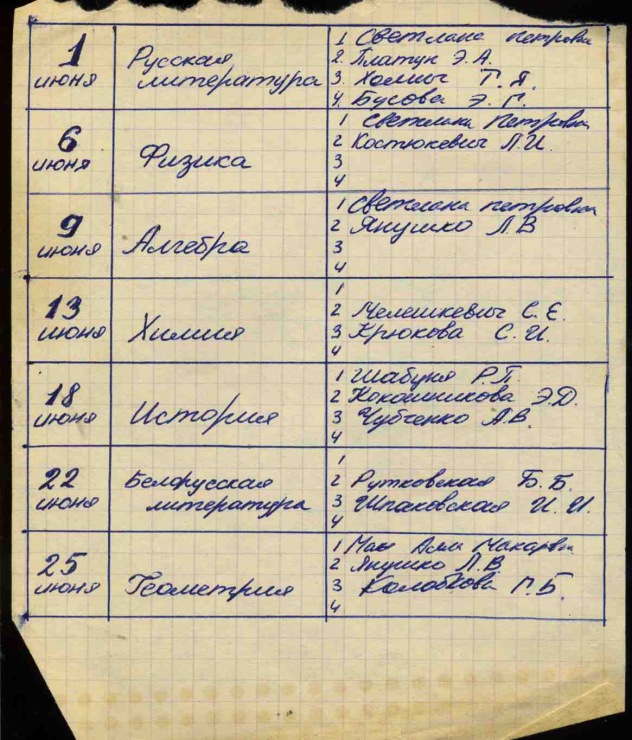 1 июня
Русская литература
1 Светлана петровна
2. Платун Э.А.
3. Холмич Т.Я.
4. Бусова Э.Г.
6 июня
Физика
1 Светлана Петровна
2 Костюкевич Л.И.
3
4
9 июня
Алгебра
1 Светлана петровна
2 Янушко Л.В
3
4
13 июня
Химия
1
2 Мелешкевич С.Е.
3 Крюкова С.И.
4
18 июня
История
1 Шабуня Р.П.
2 Кокошникова Э.Д.
3 Чубченко А.В.
4
22 июня
Белорусская литература
1
2 Рутковская Б.Б.
3 Шпаковская И.И.
4
25 июня
Геометрия
1 Макаровн
2 Янушко Л.В.
3 Колобкова Г.Б.
4